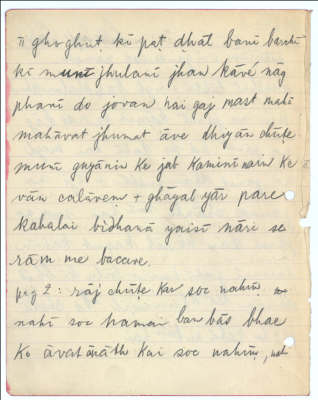 ii ghoghuṭ kī paṭ ḍhāl banī barchī
kī munī jhulanī jhan kāvé nāg
phanī do jovan hai gaj mast mahī
mahāvat jhumat āve dhiyān chūṭe
munī gnyānin ke jab kaminī nain ke
vān calāvem + ghāyal yār pare
kahalai bidhanā yaisī nāri se
rām me bacave.
pag 2 : rāj chūṭe kai soc nahīṃ
nahī soc hamai ban bās bhae
ko āvat nāth kai soc nahīṃ,